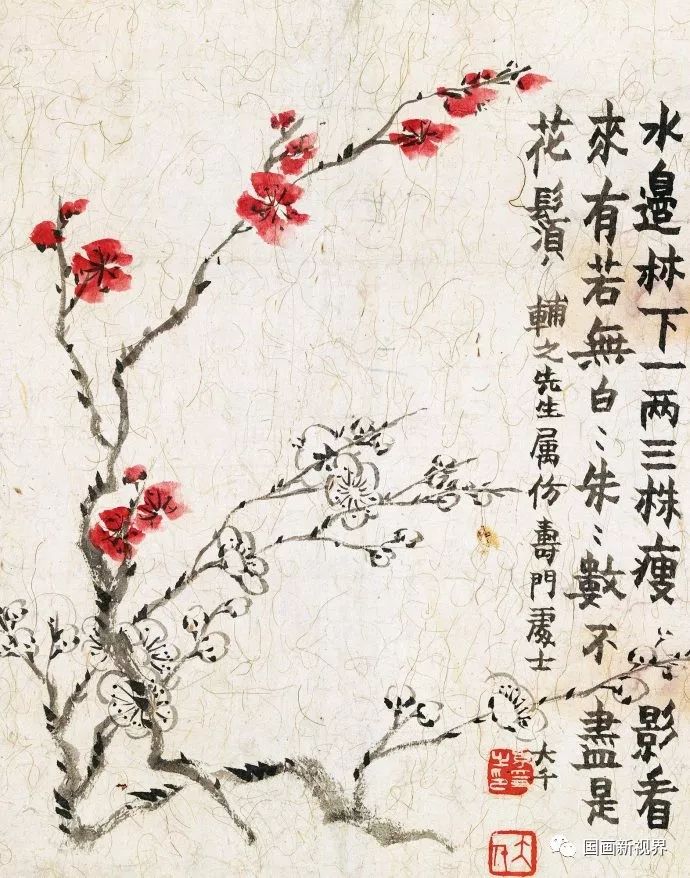 水邊林下一两三株瘦影看
來有若無白〻朱〻數不盡是
花鬚
輔之先生属仿壽門處士
大千
国画新视界